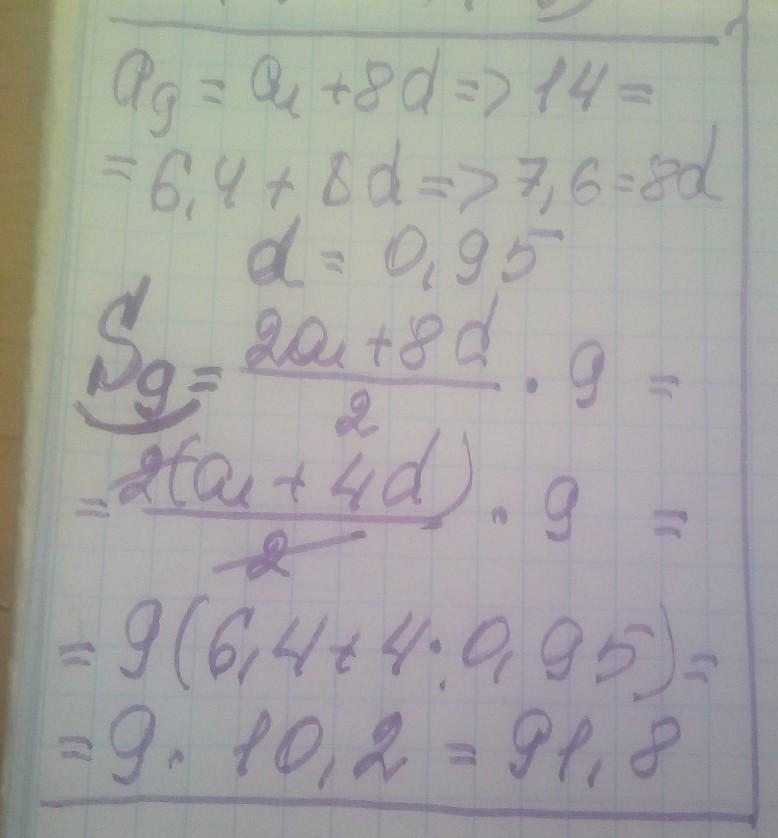 a₉ = a₁ + 8d => 14 =
= 6,4 + 8d => 7,6 = 8d
d = 0,95
S₉ = (2a₁ + 8d)/2 · 9 =
= 2(a₁ + 4d)/2 · 9 =
= 9(6,4 + 4 · 0,95) =
= 9 · 10,2 = 91,8